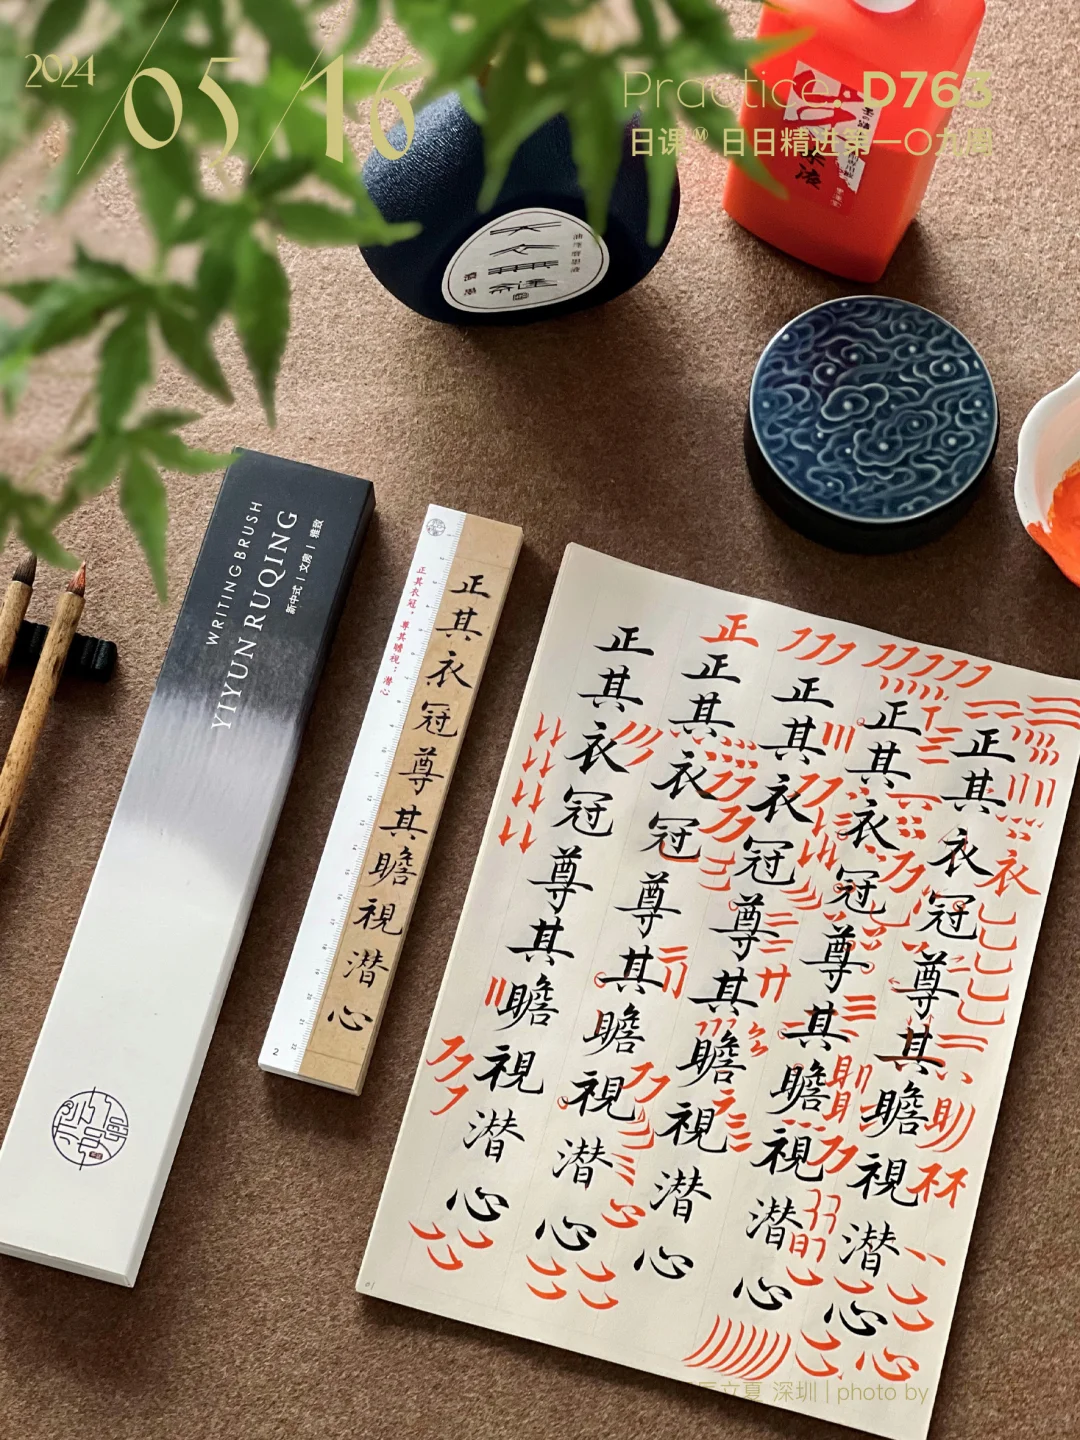 2024 / 05 / 16
Practice. D763
日课 M 日日精进第一〇九周
天衣無縫
WRITINGBRUSH
YIYUN RUQING
新中式 | 文房 | 雅致
正其衣冠，尊其瞻視；潜心
正其衣冠尊其瞻視潜心
2
正
衣
正其衣冠尊其瞻視潜心
正其衣冠尊其瞻視潜心
正其衣冠尊其瞻視潜心
正其衣冠尊其瞻視潜心
正其衣冠尊其瞻視潜心
心
立夏 深圳 | photo by